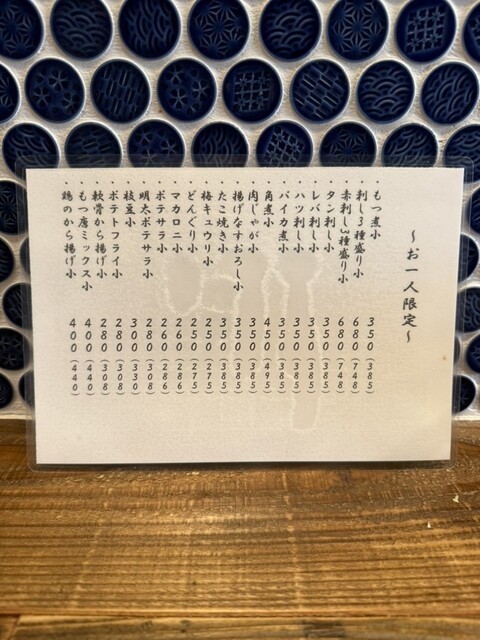 ~お一人限定~
・もつ煮小 350(385)
・刺し3種盛り小 680(748)
・赤刺し3種盛り小 680(748)
・タン刺し小 350(385)
・レバ刺し小 350(385)
・ハツ刺し小 350(385)
・パイカ煮小 350(385)
・角煮小 450(495)
・肉じゃが小 350(385)
・揚げなすおろし小 350(385)
・たこ焼き小 350(385)
・梅キュウリ小 250(275)
・どんぐり小 250(275)
・マカロニ小 260(286)
・ポテサラ小 260(286)
・明太ポテサラ小 280(308)
・枝豆小 300(330)
・ポテトフライ小 280(308)
・軟骨から揚げ小 280(308)
・もつ唐ミックス小 400(440)
・鶏のから揚げ小 400(440)